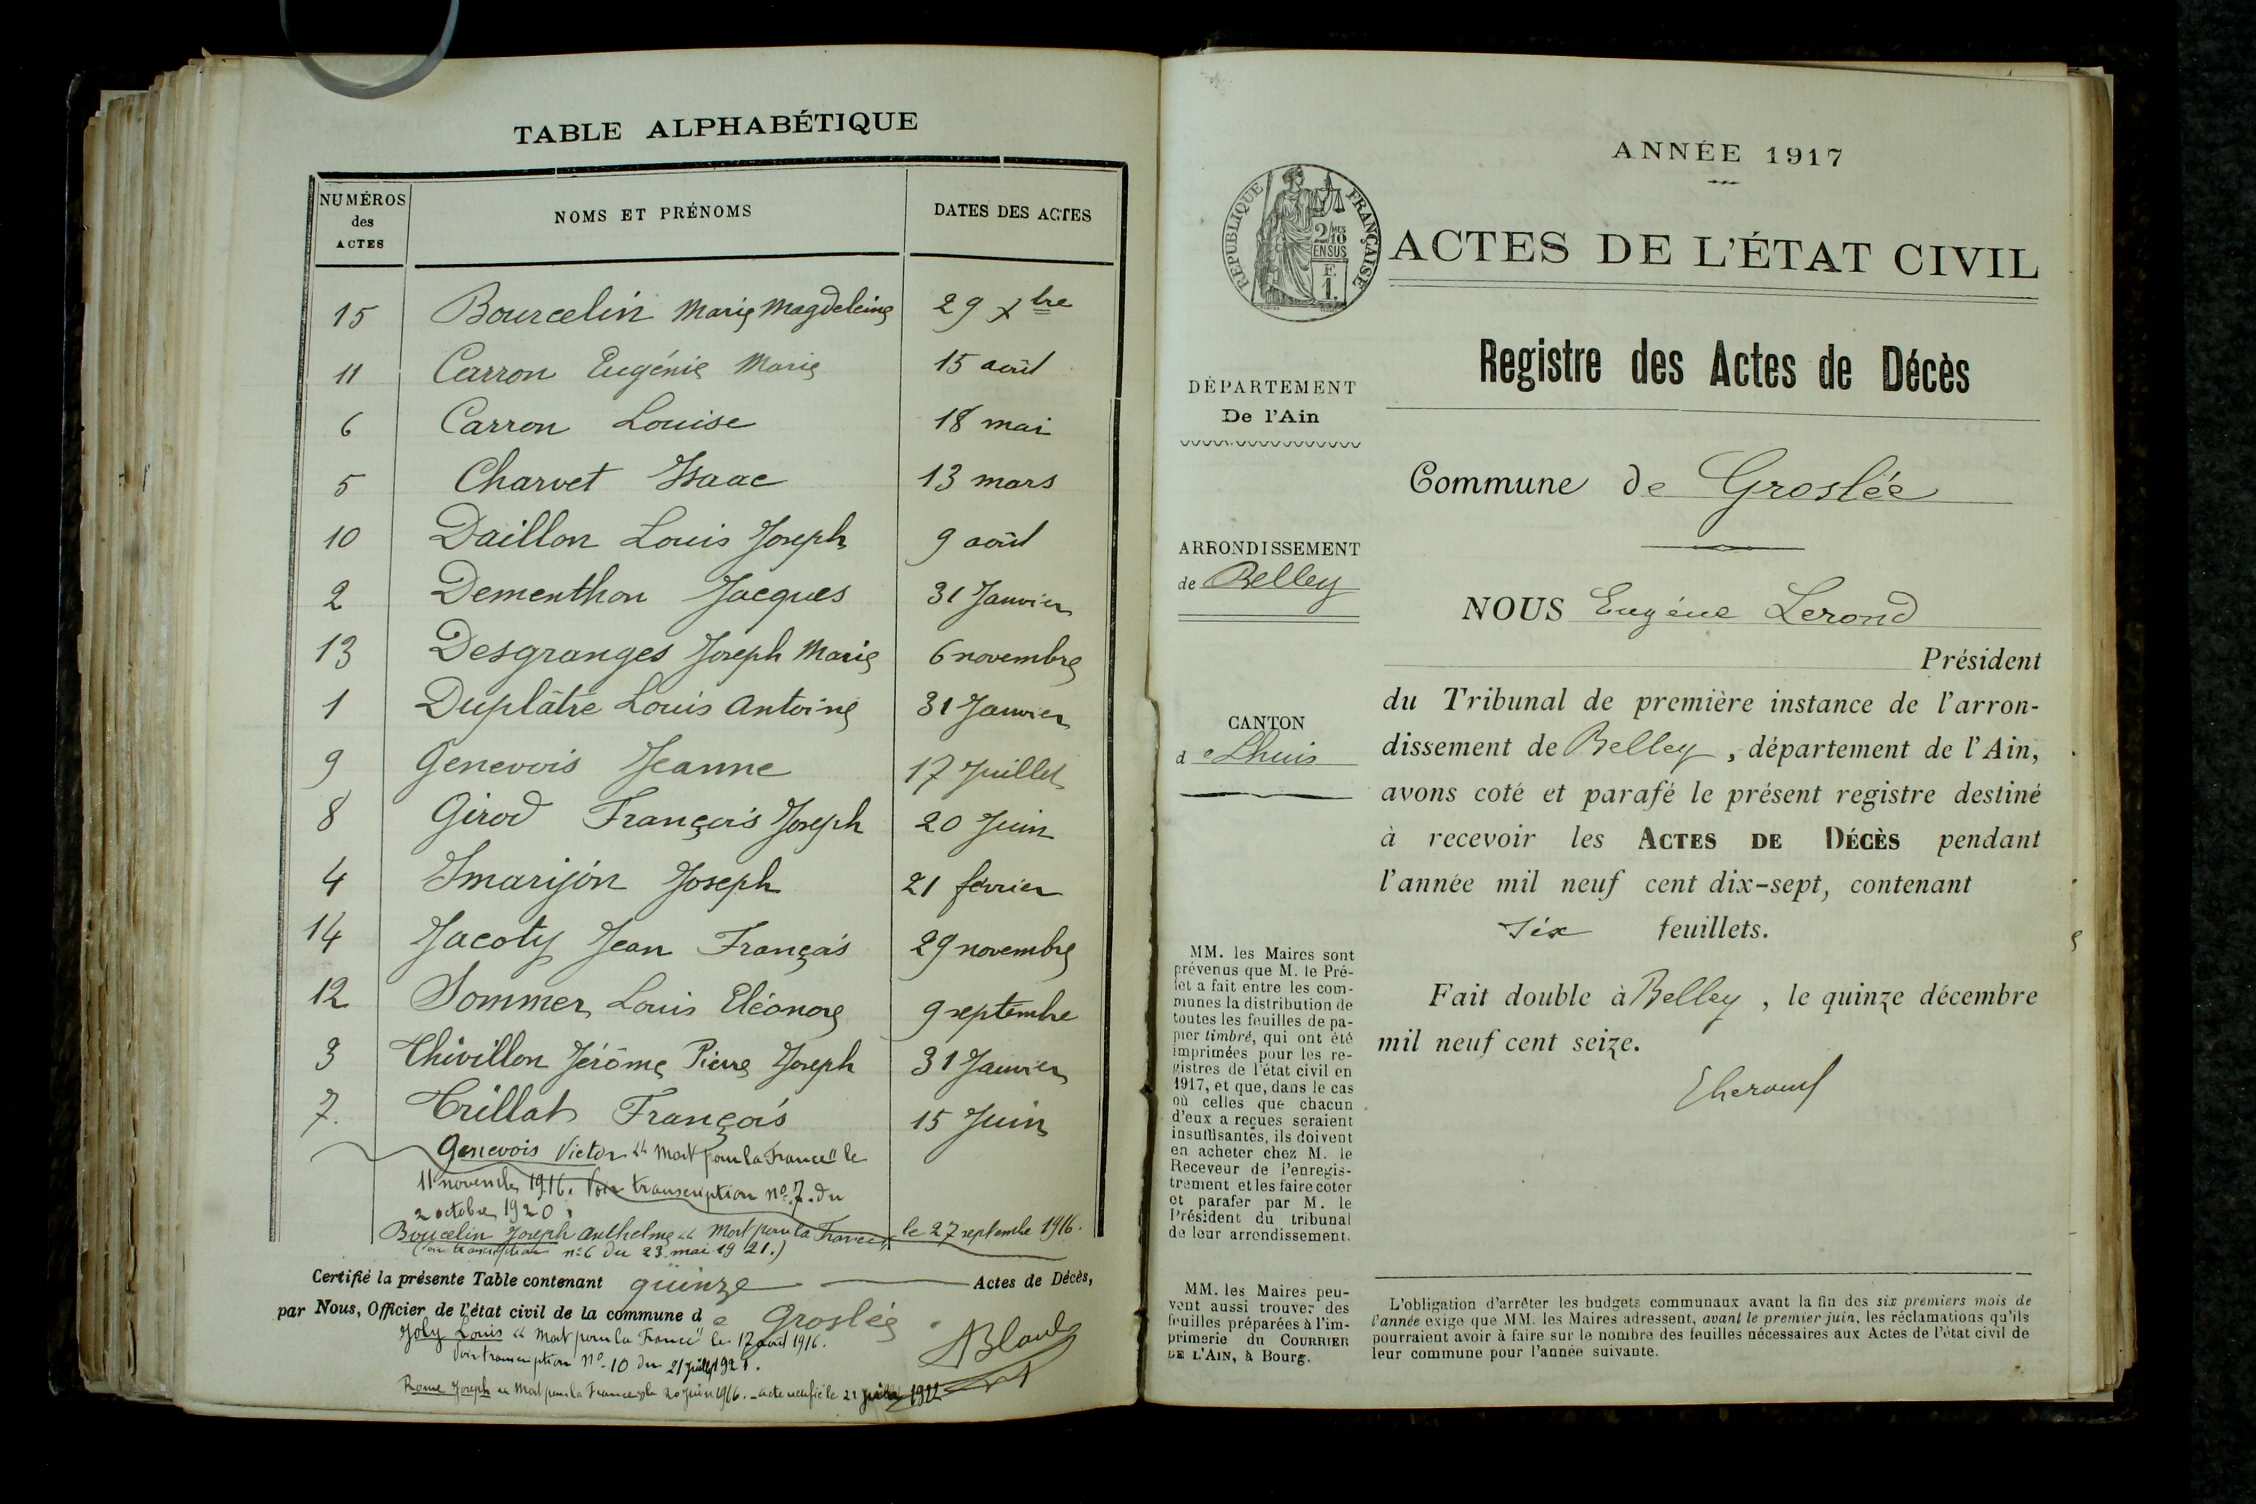 TABLE ALPHABÉTIQUE
NUMÉROS des ACTES NOMS ET PRÉNOMS DATES DES ACTES
15 Bourcelin Marie Magdeleine 29 Xbre
11 Carron Eugénie Marie 15 août
6 Carron Louise 18 mai
5 Charvet Isaac 13 mars
10 Daillon Louis Joseph 9 août
2 Dementhon Jacques 31 Janvier
13 Desgranges Joseph Marie 6 novembre
1 Duplâtre Louis Antoine 31 Janvier
9 Genevois Jeanne 17 Juillet
8 Girod François Joseph 20 Juin
4 Imarijon Joseph 21 février
14 Jacoty Jean François 29 novembre
12 Sommer Louis Eléonore 9 septembre
3 Thivillon Jérôme Pierre Joseph 31 Janvier
7. Trillat François 15 Juin
Genevois Victor "Mort pour la France" le
11 novembre 1916. Voir transcription no. 7. du
2 octobre 1920.
Bourcelin Joseph Anthelme "Mort pour la France" le 27 septembre 1916.
(Voir transcription no 6 du 23 mai 1921.)
Certifié la présente Table contenant quinze Actes de Décès,
par Nous, Officier de l'état civil de la commune de Groslée.
Joly Louis "Mort pour la France" le 17 août 1916.
Voir transcription No-10 du 21 juillet 1921.
Joseph "Mort pour la France" le 20 juin 1916. - acte rectifié le 21 1922
ANNÉE 1917
RÉPUBLIQUE FRANÇAISE
2/10 MES
EN SUS
F.
1.
ACTES DE L'ÉTAT CIVIL
Registre des Actes de Décès
DÉPARTEMENT
De l'Ain
Commune de Groslée
ARRONDISSEMENT
de Belley
NOUS Eugène Lerond
Président
du Tribunal de première instance de l'arron-
dissement de Belley, département de l'Ain,
avons coté et parafé le présent registre destiné
à recevoir les ACTES DE DÉCÈS pendant
l'année mil neuf cent dix-sept, contenant
six feuillets.
Fait double à Belley, le quinze décembre
mil neuf cent seize.
CANTON
de Lhuis
MM. les Maires sont
prévenus que M. le Pré-
fet a fait entre les com-
munes la distribution de
toutes les feuilles de pa-
pier timbré, qui ont été
imprimées pour les re-
gistres de l'état civil en
1917, et que, dans le cas
où celles que chacun
d'eux a reçues seraient
insuffisantes, ils doivent
en acheter chez M. le
Receveur de l'enregis-
trement et les faire coter
et parafer par M. le
Président du tribunal
de leur arrondissement.
MM. les Maires peu-
vent aussi trouver des
feuilles préparées à l'im-
primerie du COURRIER
DE L'AIN, à Bourg.
L'obligation d'arrêter les budgets communaux avant la fin des six premiers mois de
l'année exige que MM. les Maires adressent, avant le premier juin, les réclamations qu'ils
pourraient avoir à faire sur le nombre des feuilles nécessaires aux Actes de l'état civil de
leur commune pour l'année suivante.